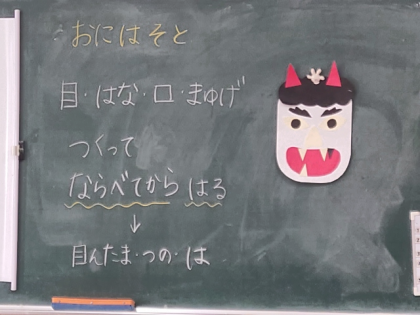 おにはそと
目・はな・口・まゆげ
つくって
ならべてから はる
↓
目んたま・つの・は